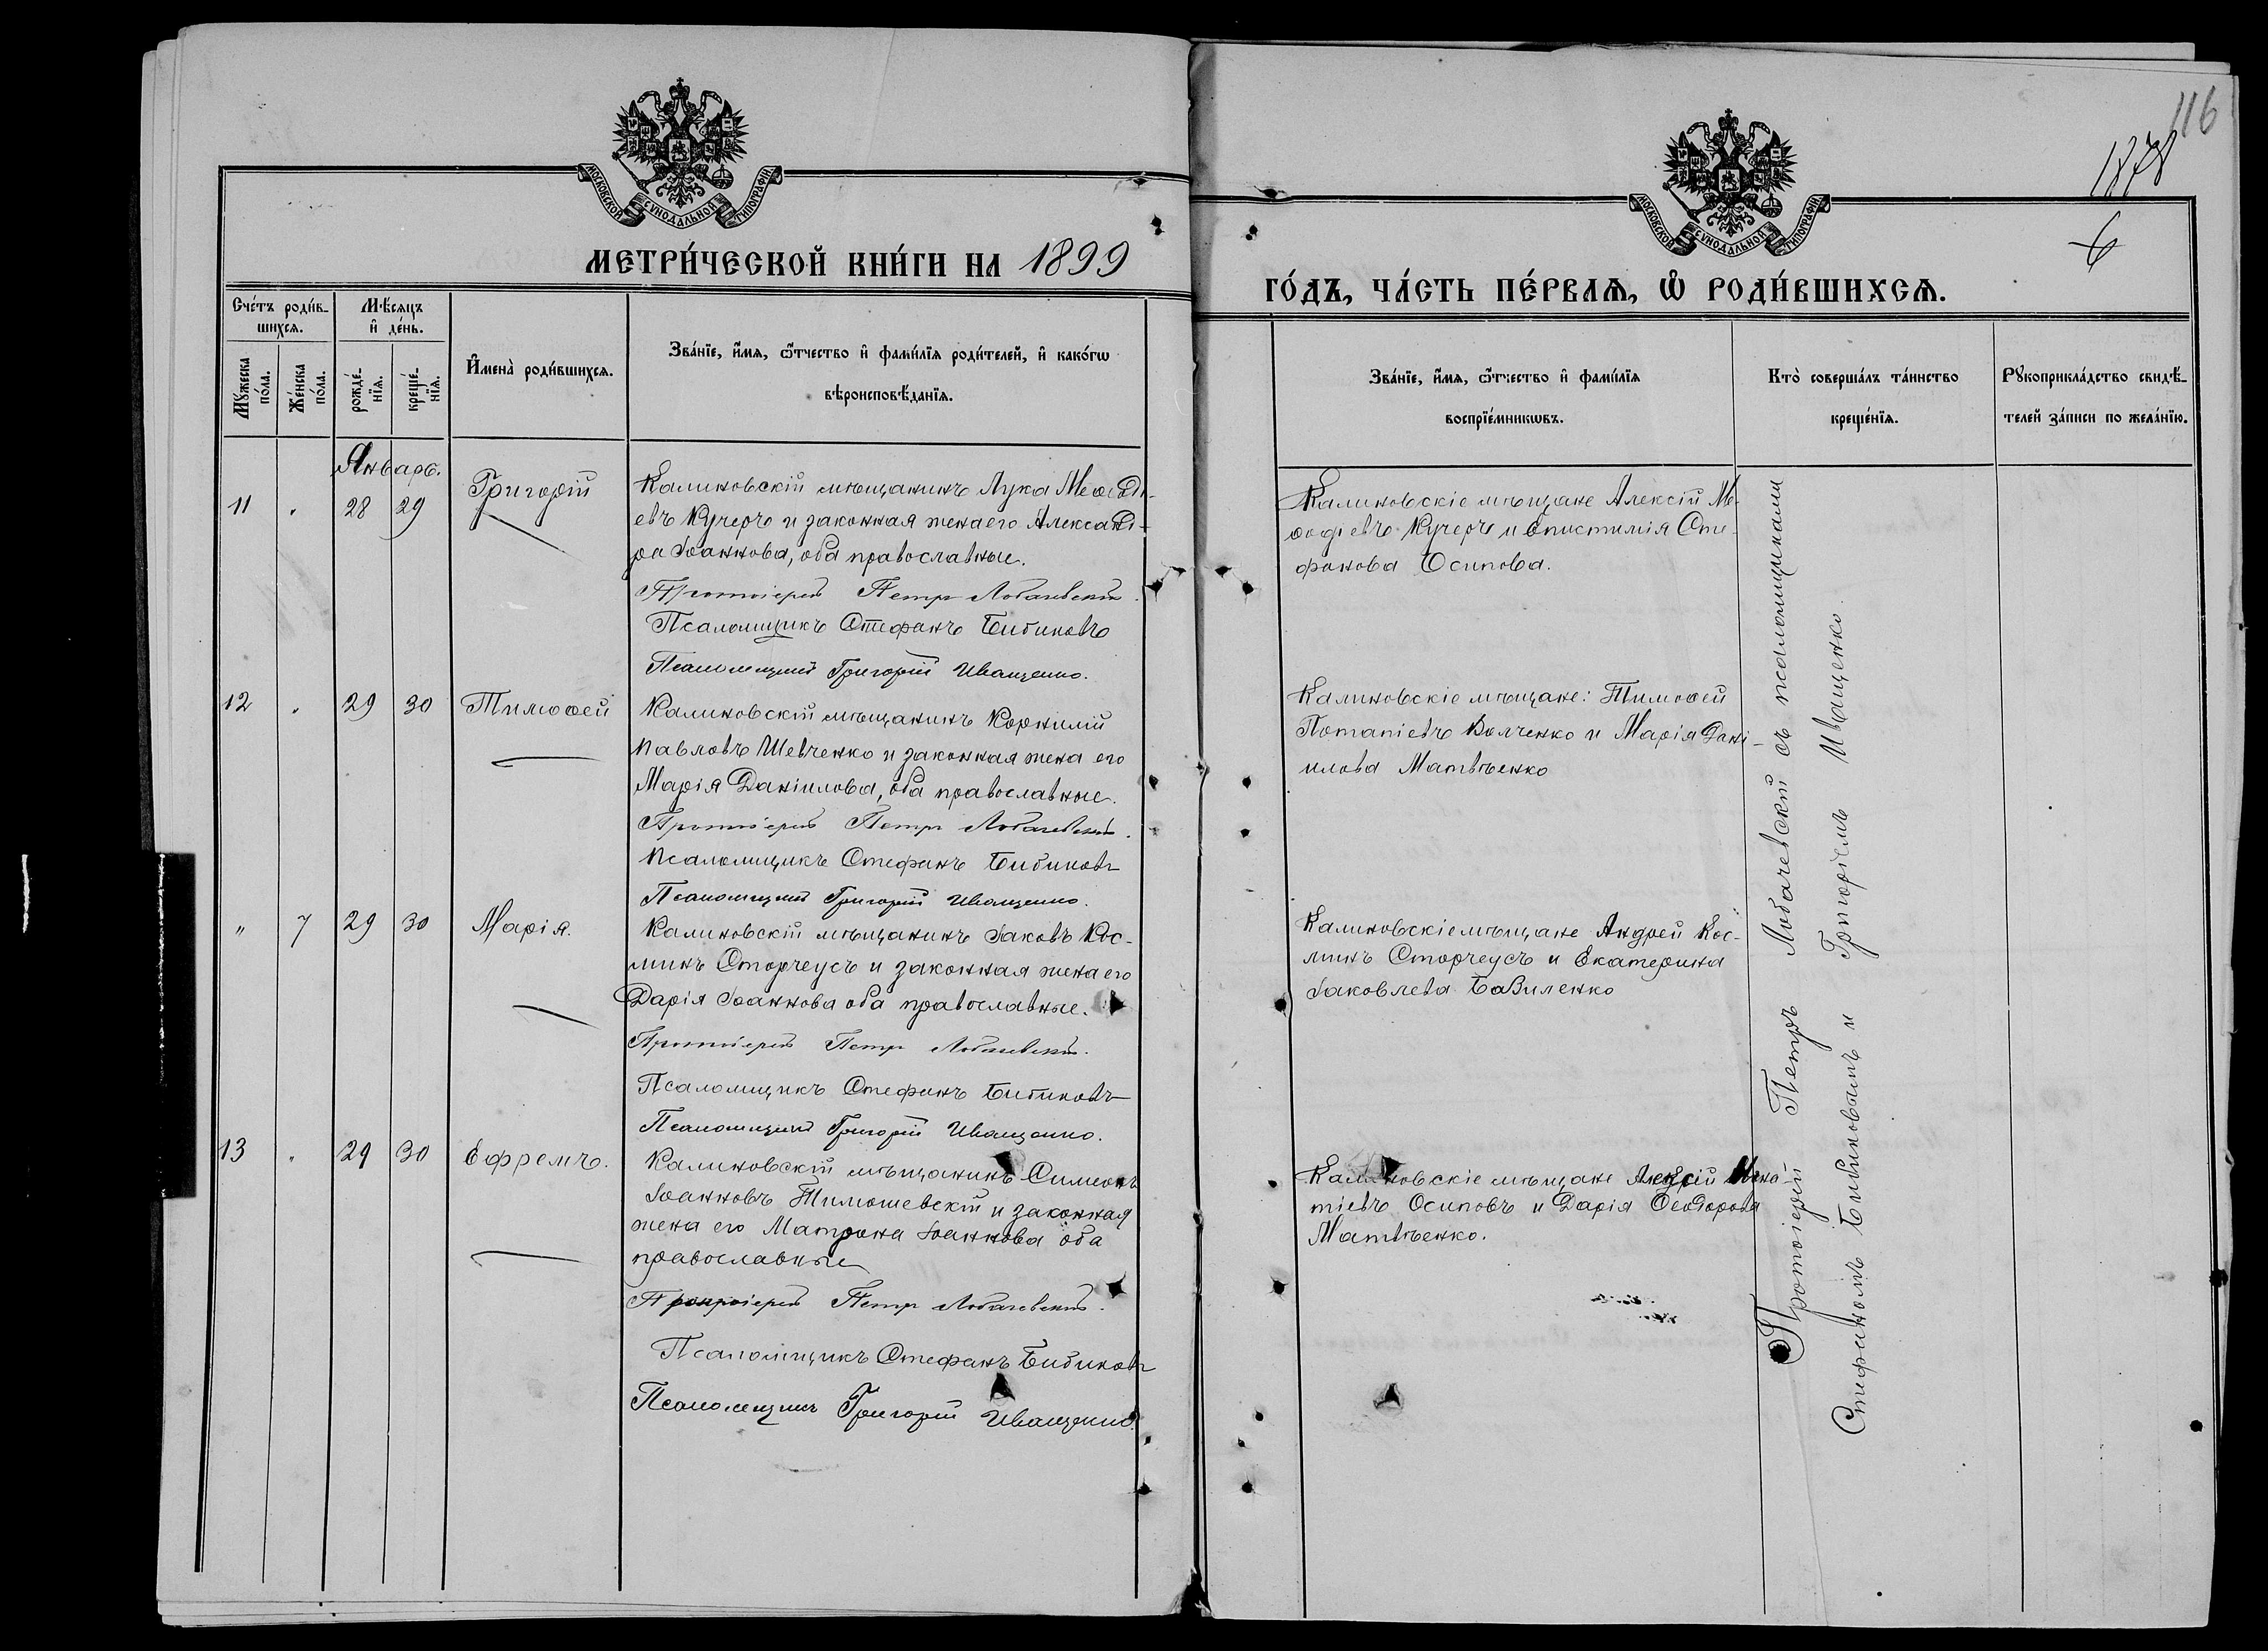 116
1878
6
МОСКОВСКОЙ СѴНОДАЛЬНОЙ ТИПОГРАФІИ
МОСКОВСКОЙ СѴНОДАЛЬНОЙ ТИПОГРАФІИ
МЕТРИ́ЧЕСКОЙ КНИ́ГИ НА 1899
ГО́ДЪ, ЧА́СТЬ ПЕ́РВАѦ, Ѡ҆ РОДИ́ВШИХСѦ.
Сче́тъ роди́в-
шихсѧ.
Мꙋ́жеска
по́ла.
Же́нска
по́ла.
Мѣ́сѧцъ
и҆ де́нь.
рожде́-
нїѧ.
креще́-
нїѧ.
И҆мена̀ роди́вшихсѧ.
Зва́нїе, и҆́мѧ, ѻ҆́тчество и҆ фами́лїѧ роди́телей, и҆ како́гѡ
вѣроисповѣ́данїѧ.
Зва́нїе, и҆́мѧ, ѻ҆́тчество и҆ фами́лїѧ
воспрїе́мникѡвъ.
Кто̀ соверша́лъ та́инство
креще́нїѧ.
Рꙋкоприкла́дство свидѣ́-
телей за́писи по жела́нїю.
Январь.
11 " 28 29 Григорій
Калиновскій мѣщанинъ Лука Меѳоді-
евъ Кучеръ и законная жена его Александ-
ра Іоаннова, оба православные.
Протоіерей Петръ Лобачевскій.
Псаломщикъ Стефанъ Бибиковъ
Псаломщикъ Григорій Иващенко.
Калиновскіе мѣщане Алексій Ме-
ѳодіевъ Кучеръ и Епистимія Сте-
фанова Осипова.
12 " 29 30 Тимоѳей
Калиновскій мѣщанинъ Корнилій
Павловъ Шевченко и законная жена его
Марія Даніилова, оба православные.
Протоіерей Петръ Лобачевскій.
Псаломщикъ Стефанъ Бибиковъ
Псаломщикъ Григорій Иващенко.
Калиновскіе мѣщане: Тимоѳей
Потапіевъ Волченко и Марія Дані-
илова Матвѣенко
" 7 29 30 Марія.
Калиновскій мѣщанинъ Іаковъ Кос-
минъ Сторчеусъ и законная жена его
Дарія Іоаннова оба православные.
Протоіерей Петръ Лобачевскій.
Псаломщикъ Стефанъ Бибиковъ
Псаломщикъ Григорій Иващенко.
Калиновскіе мѣщане Андрей Кос-
минъ Сторчеусъ и Екатерина
Іаковлева Бавиленко
13 " 29 30 Ефремъ.
Калиновскій мѣщанинъ Симеонъ
Іоанновъ Тимошевскій и законная
жена его Матрона Іоаннова оба
православные
Протоіерей Петръ Лобачевскій.
Псаломщикъ Стефанъ Бибиковъ
Псаломщикъ Григорій Иващенко.
Калиновскіе мѣщане Алексій
Осиповъ и Дарія Ѳеодорова
Матвѣенко.
Протоіерей Петръ Лобачевскій съ псаломщиками
Стефаномъ Бибиковымъ и Григоріемъ Иващенко.